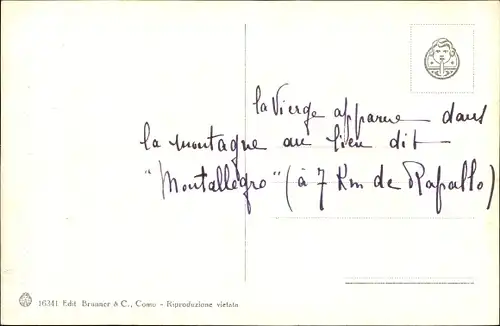 la Vierge apparue dans
la montagne au lieu dit
"Montallegro" (à 7 Km de Rapallo)
16341 Edit Brunner & C., Como - Riproduzione vietata